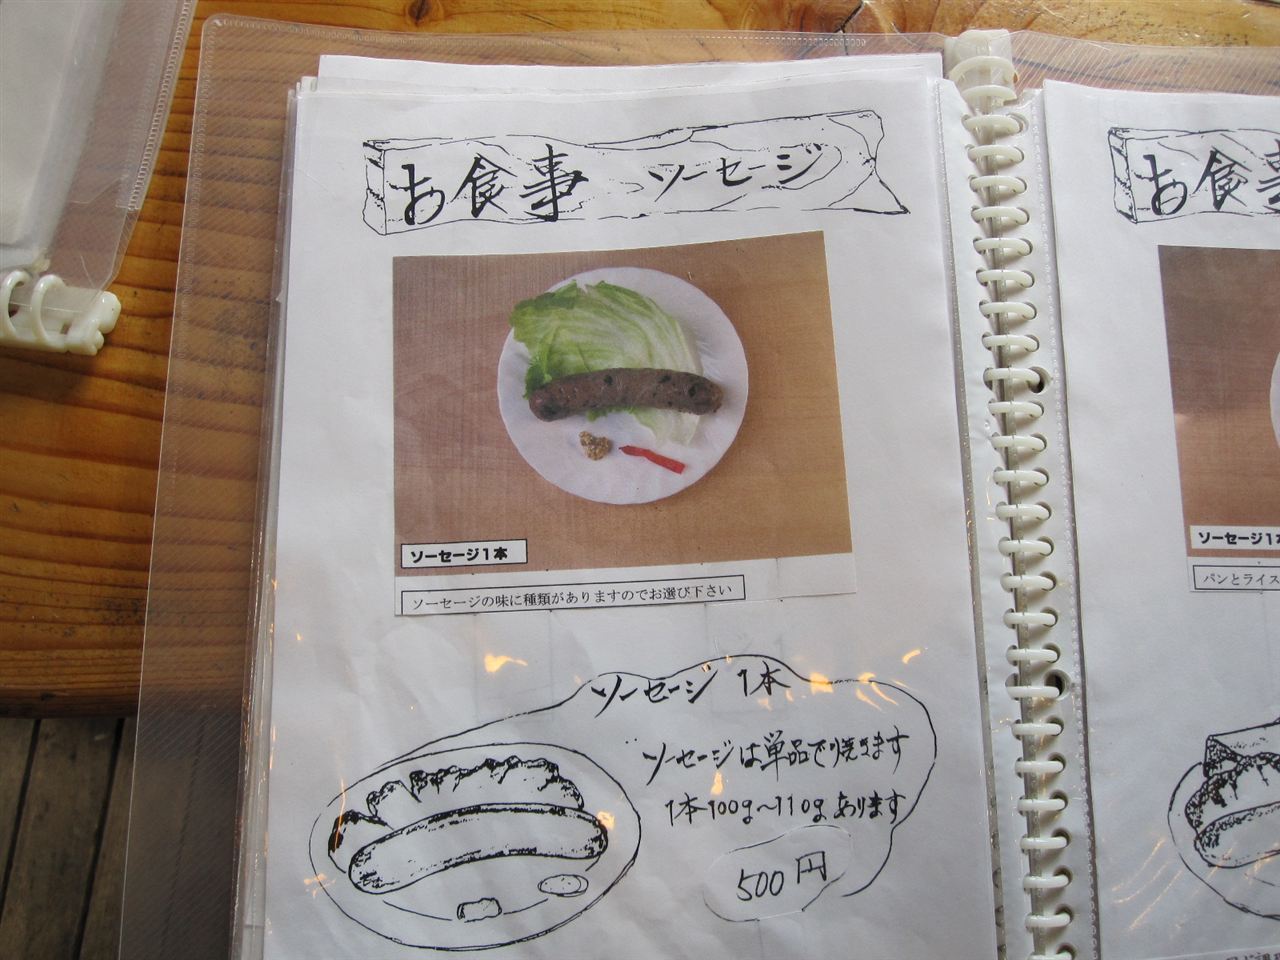 お食事 ソーセージ
ソーセージ1本
ソーセージの味に種類がありますのでお選び下さい
ソーセージ 1本
ソーセージは単品で焼きます
1本100g~110gあります
500円
お食事
ソーセージ1本
パンとライス